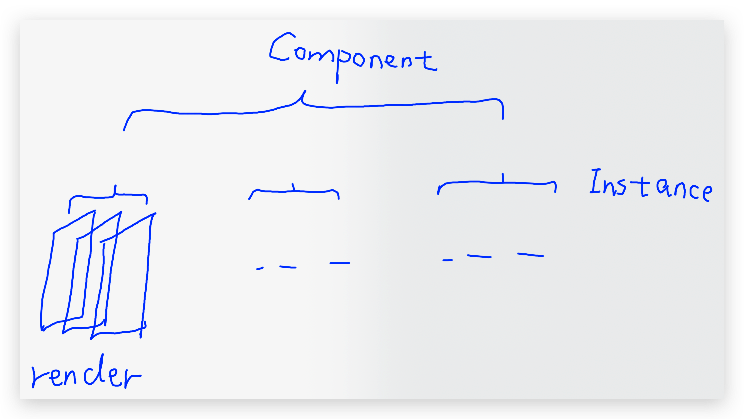 Component
Instance
render